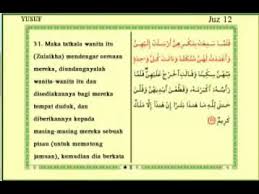 YUSUF
Juz 12
31. Maka tatkala wanita itu
(Zulaikha) mendengar cercaan
mereka, diundangnyalah
wanita-wanita itu dan
disediakannya bagi mereka
tempat duduk, dan
diberikannya kepada
masing-masing mereka sebuah
pisau (untuk memotong
jamuan), kemudian dia berkata
فَلَمَّا سَمِعَتْ بِمَكْرِهِنَّ أَرْسَلَتْ إِلَيْهِنَّ
وَأَعْتَدَتْ لَهُنَّ مُتَّكَـًٔا وَءَاتَتْ كُلَّ وَٰحِدَةٍ
مِّنْهُنَّ سِكِّينًا وَقَالَتِ ٱخْرُجْ عَلَيْهِنَّ فَلَمَّا
رَأَيْنَهُۥٓ أَكْبَرْنَهُۥ وَقَطَّعْنَ أَيْدِيَهُنَّ وَقُلْنَ
حَٰشَ لِلَّهِ مَا هَٰذَا بَشَرًا إِنْ هَٰذَآ إِلَّا مَلَكٌ
كَرِيمٌ